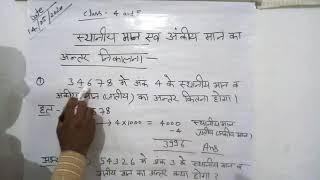 Date
Class - 4 and 5
स्थानीय मान एवं अंकीय मान का
अन्तर निकालना -
① 34678 में अंक 4 के स्थानीय मान व
मान (जातीय) का अन्तर कितना होगा।
हल
678
→ 4×1000 = 4000 स्थानीय मान
-4
3996 Ans
54326 में अंक 3 के स्थानीय मान व
मान का अन्तर क्या होगा?